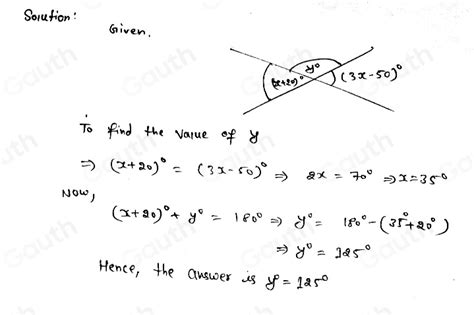 Solution:
Given,
y° (x+20)° (3x-50)°
To find the value of y
⇒ (x+20)° = (3x-50)° ⇒ 2x = 70° ⇒ x = 35°
Now,
(x+20)° + y° = 180° ⇒ y° = 180° - (35° + 20°)
⇒ y° = 125°
Hence, the answer is y° = 125°
Gauth